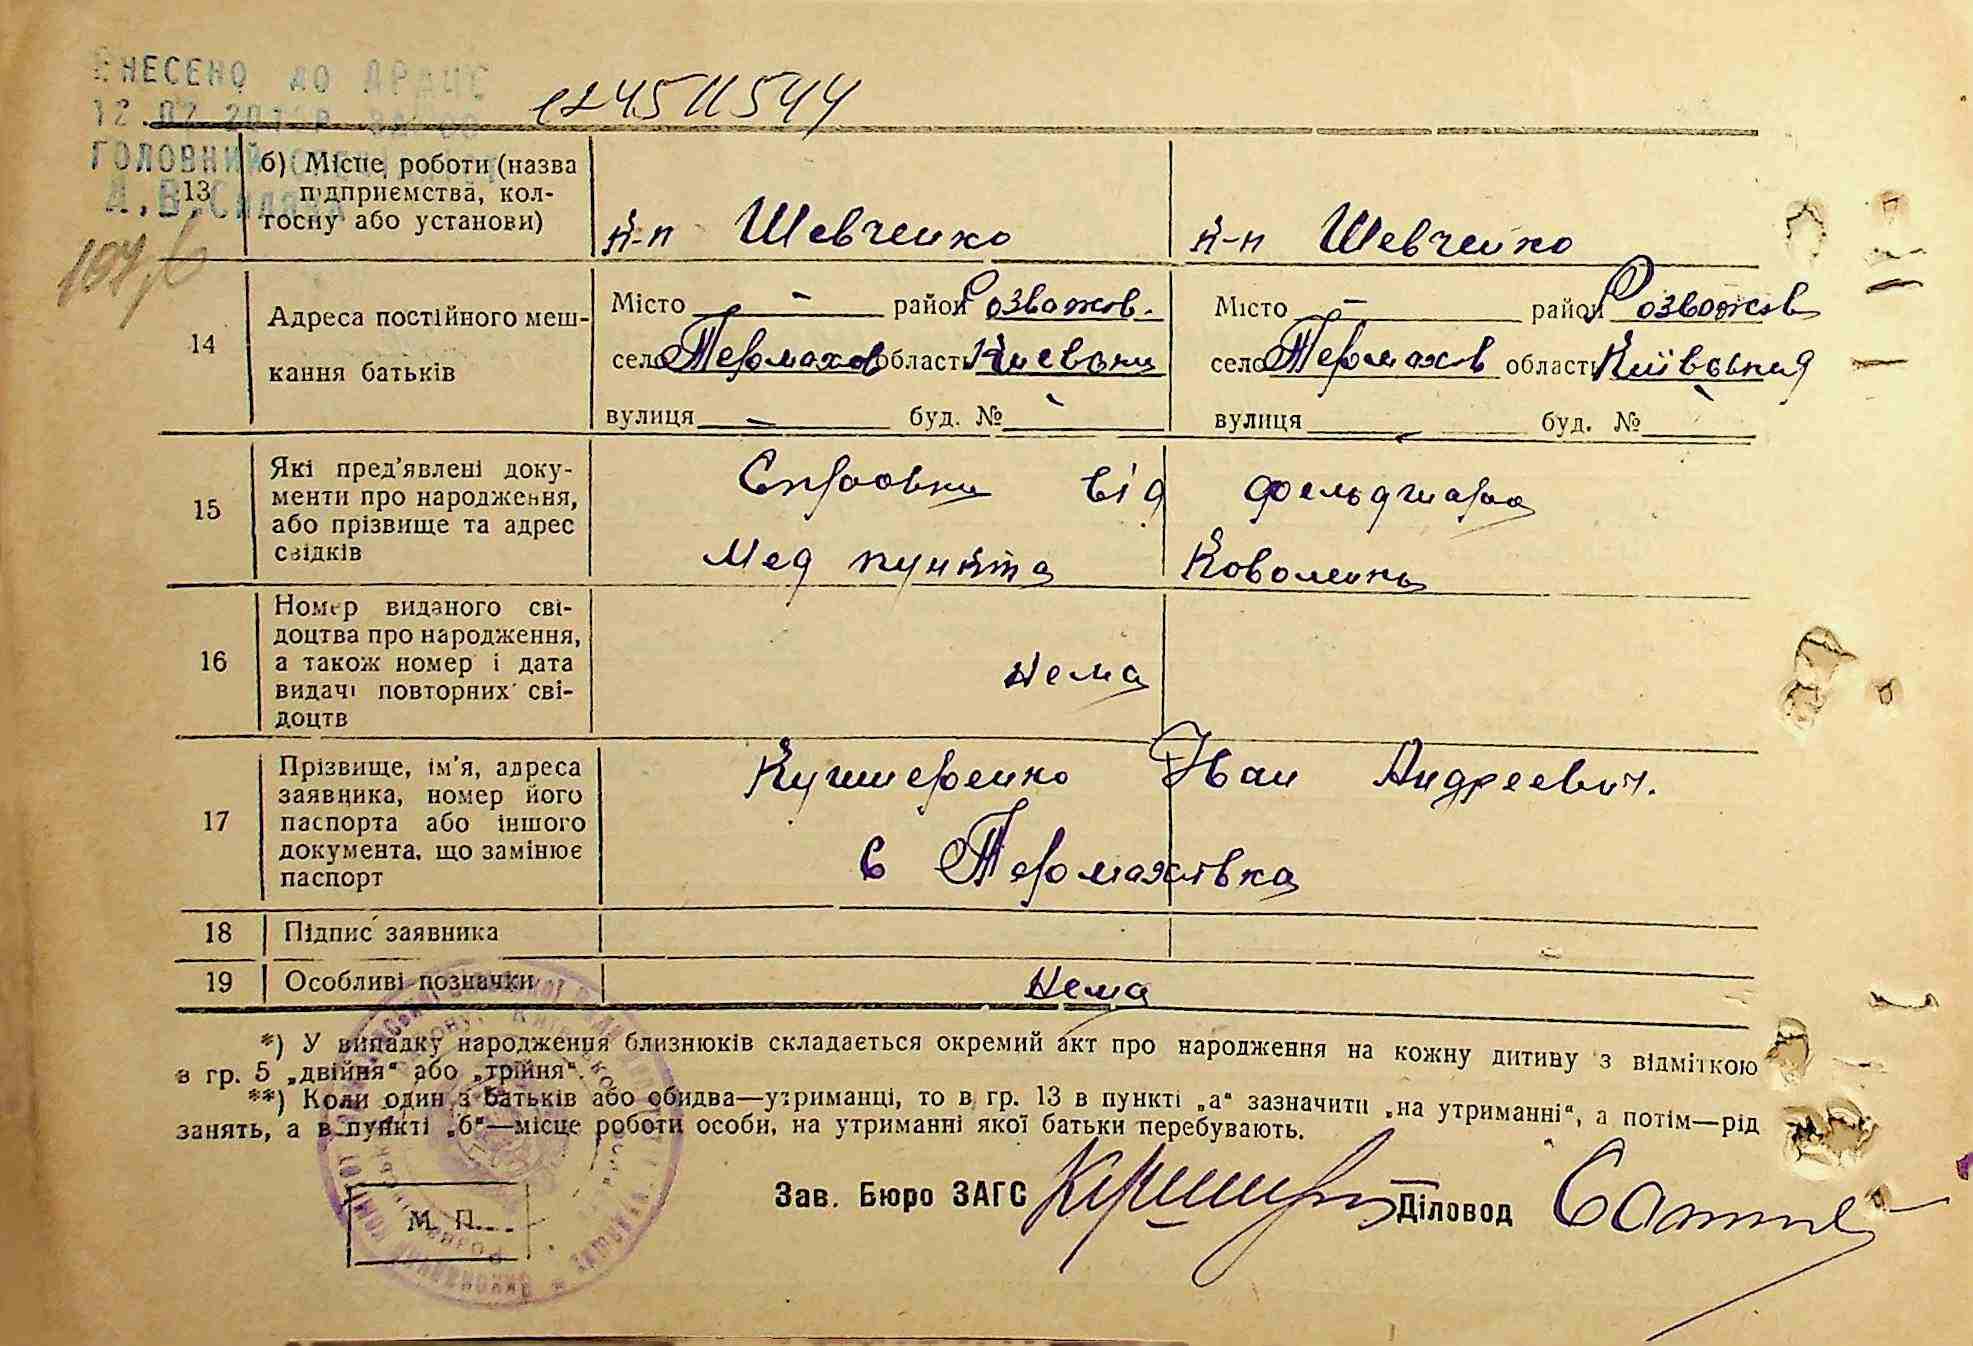 ВНЕСЕНО ДО ДРАЦС
12.02.
ГОЛОВНИЙ
А.В.
124511544
13 б) Місце роботи (назва
підприємства, кол-
госпу або установи)
к-п Шевченко к-п Шевченко
14 Адреса постійного меш-
кання батьків
Місто — район Розважів. Місто — район Розважів
село Термахов область Киевьки село Термахов область Київьская
вулиця — буд. № вулиця — буд. №
15 Які пред'явлені доку-
менти про народження,
або прізвище та адрес
свідків
Справки від фельдшара
Мед пункта Коволенко
16 Номер виданого сві-
доцтва про народження,
а також номер і дата
видачі повторних сві-
доцтв
Нема
17 Прізвище, ім'я, адреса
заявника, номер його
паспорта або іншого
документа, що замінює
паспорт
Кушнеренко Іван Андреевич.
с Термахівка
18 Підпис заявника
19 Особливі позначки
Нема
*) У випадку народження близнюків складається окремий акт про народження на кожну дитину з відміткою
в гр. 5 „двійня“ або „трійня“.
**) Коли один з батьків або обидва—утриманці, то в гр. 13 в пункті „а“ зазначити „на утриманні“, а потім—рід
занять, а в пункті „б“—місце роботи особи, на утриманні якої батьки перебувають.
Зав. Бюро ЗАГС Діловод
М. П.